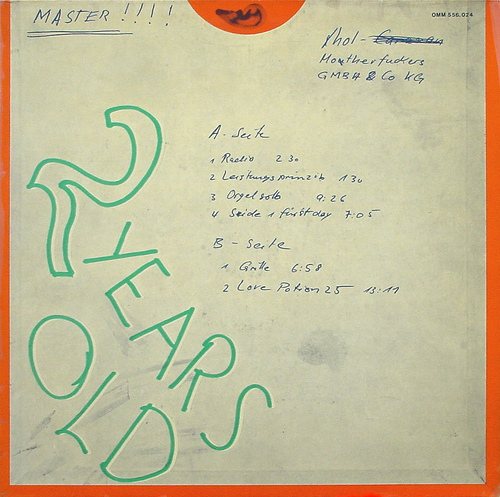 MASTER !!!!
OMM 556.024
Phol - Caravan
Motherfuckers
GMBH & Co KG
A - Seite
1 Radio 2 30
2 Leistungsprinzip 1 30
3 Orgelsolo 9:26
4 Seide 1 first day 7:05
B - Seite
1 Grille 6:58
2 Love Potion 25 13:11
2 YEARS OLD